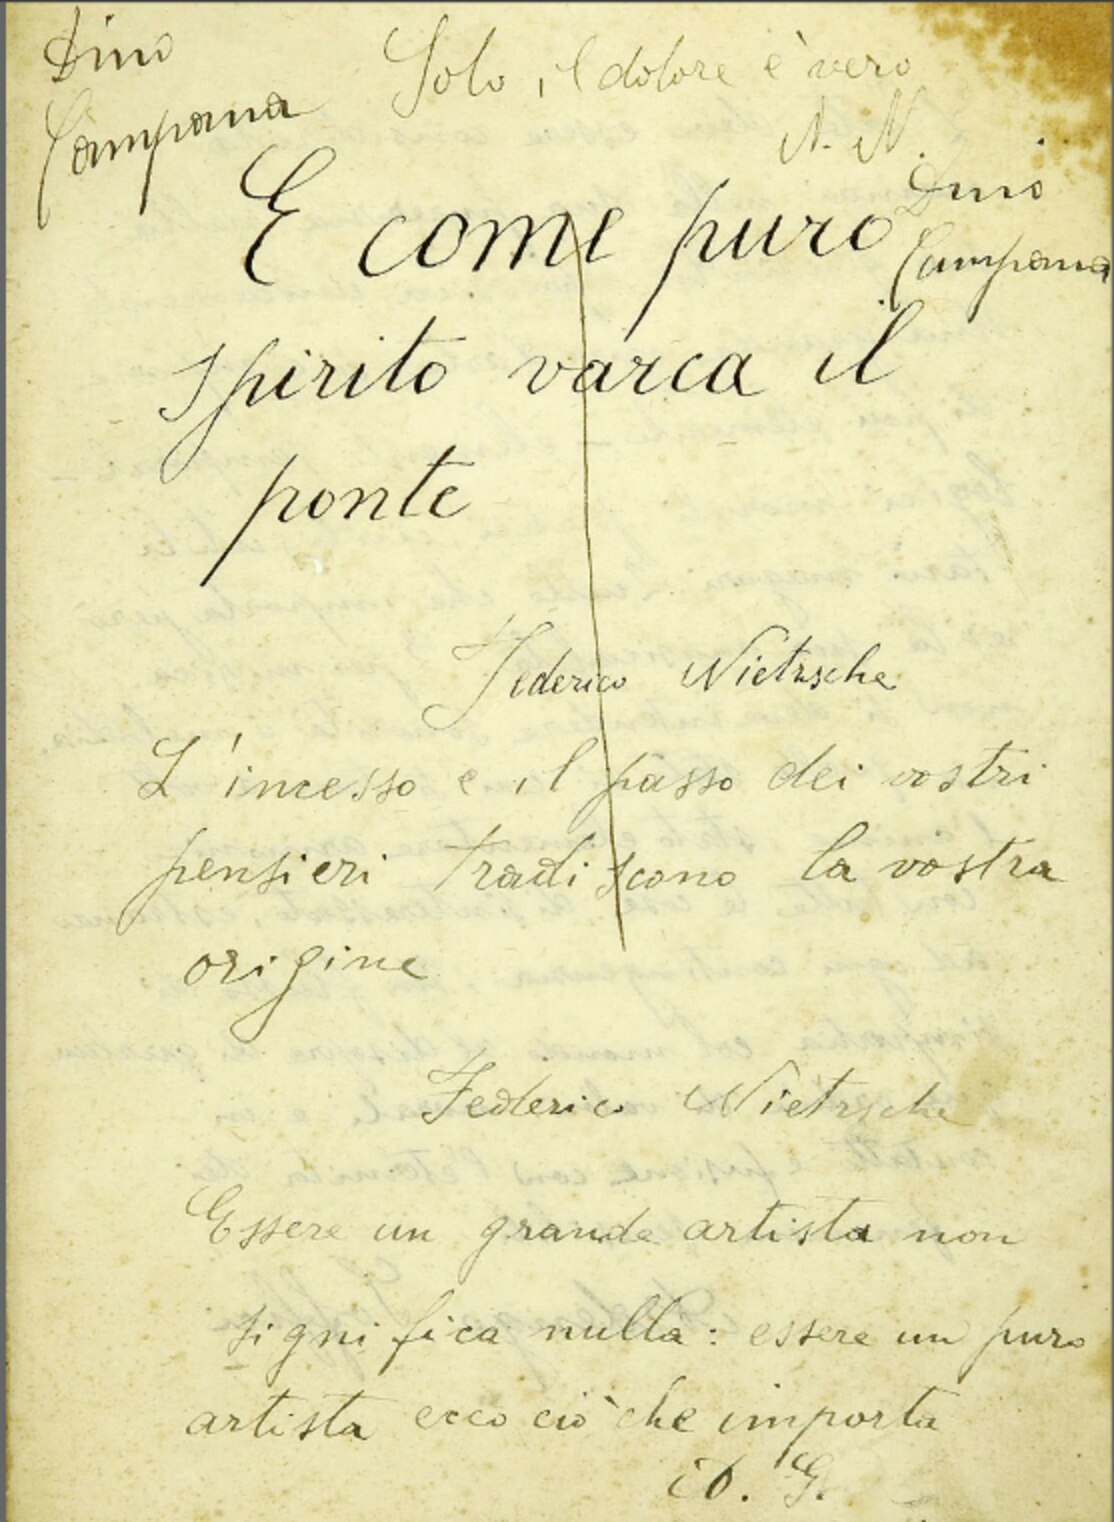 Dino
Campana
Solo il dolore è vero
N. N.
Dino
Campana
E come puro
spirito varca il
ponte
Federico Nietzsche
L'incesso e il passo dei vostri
pensieri tradiscono la vostra
origine
Federico Nietzsche
Essere un grande artista non
significa nulla: essere un puro
artista ecco ciò che importa